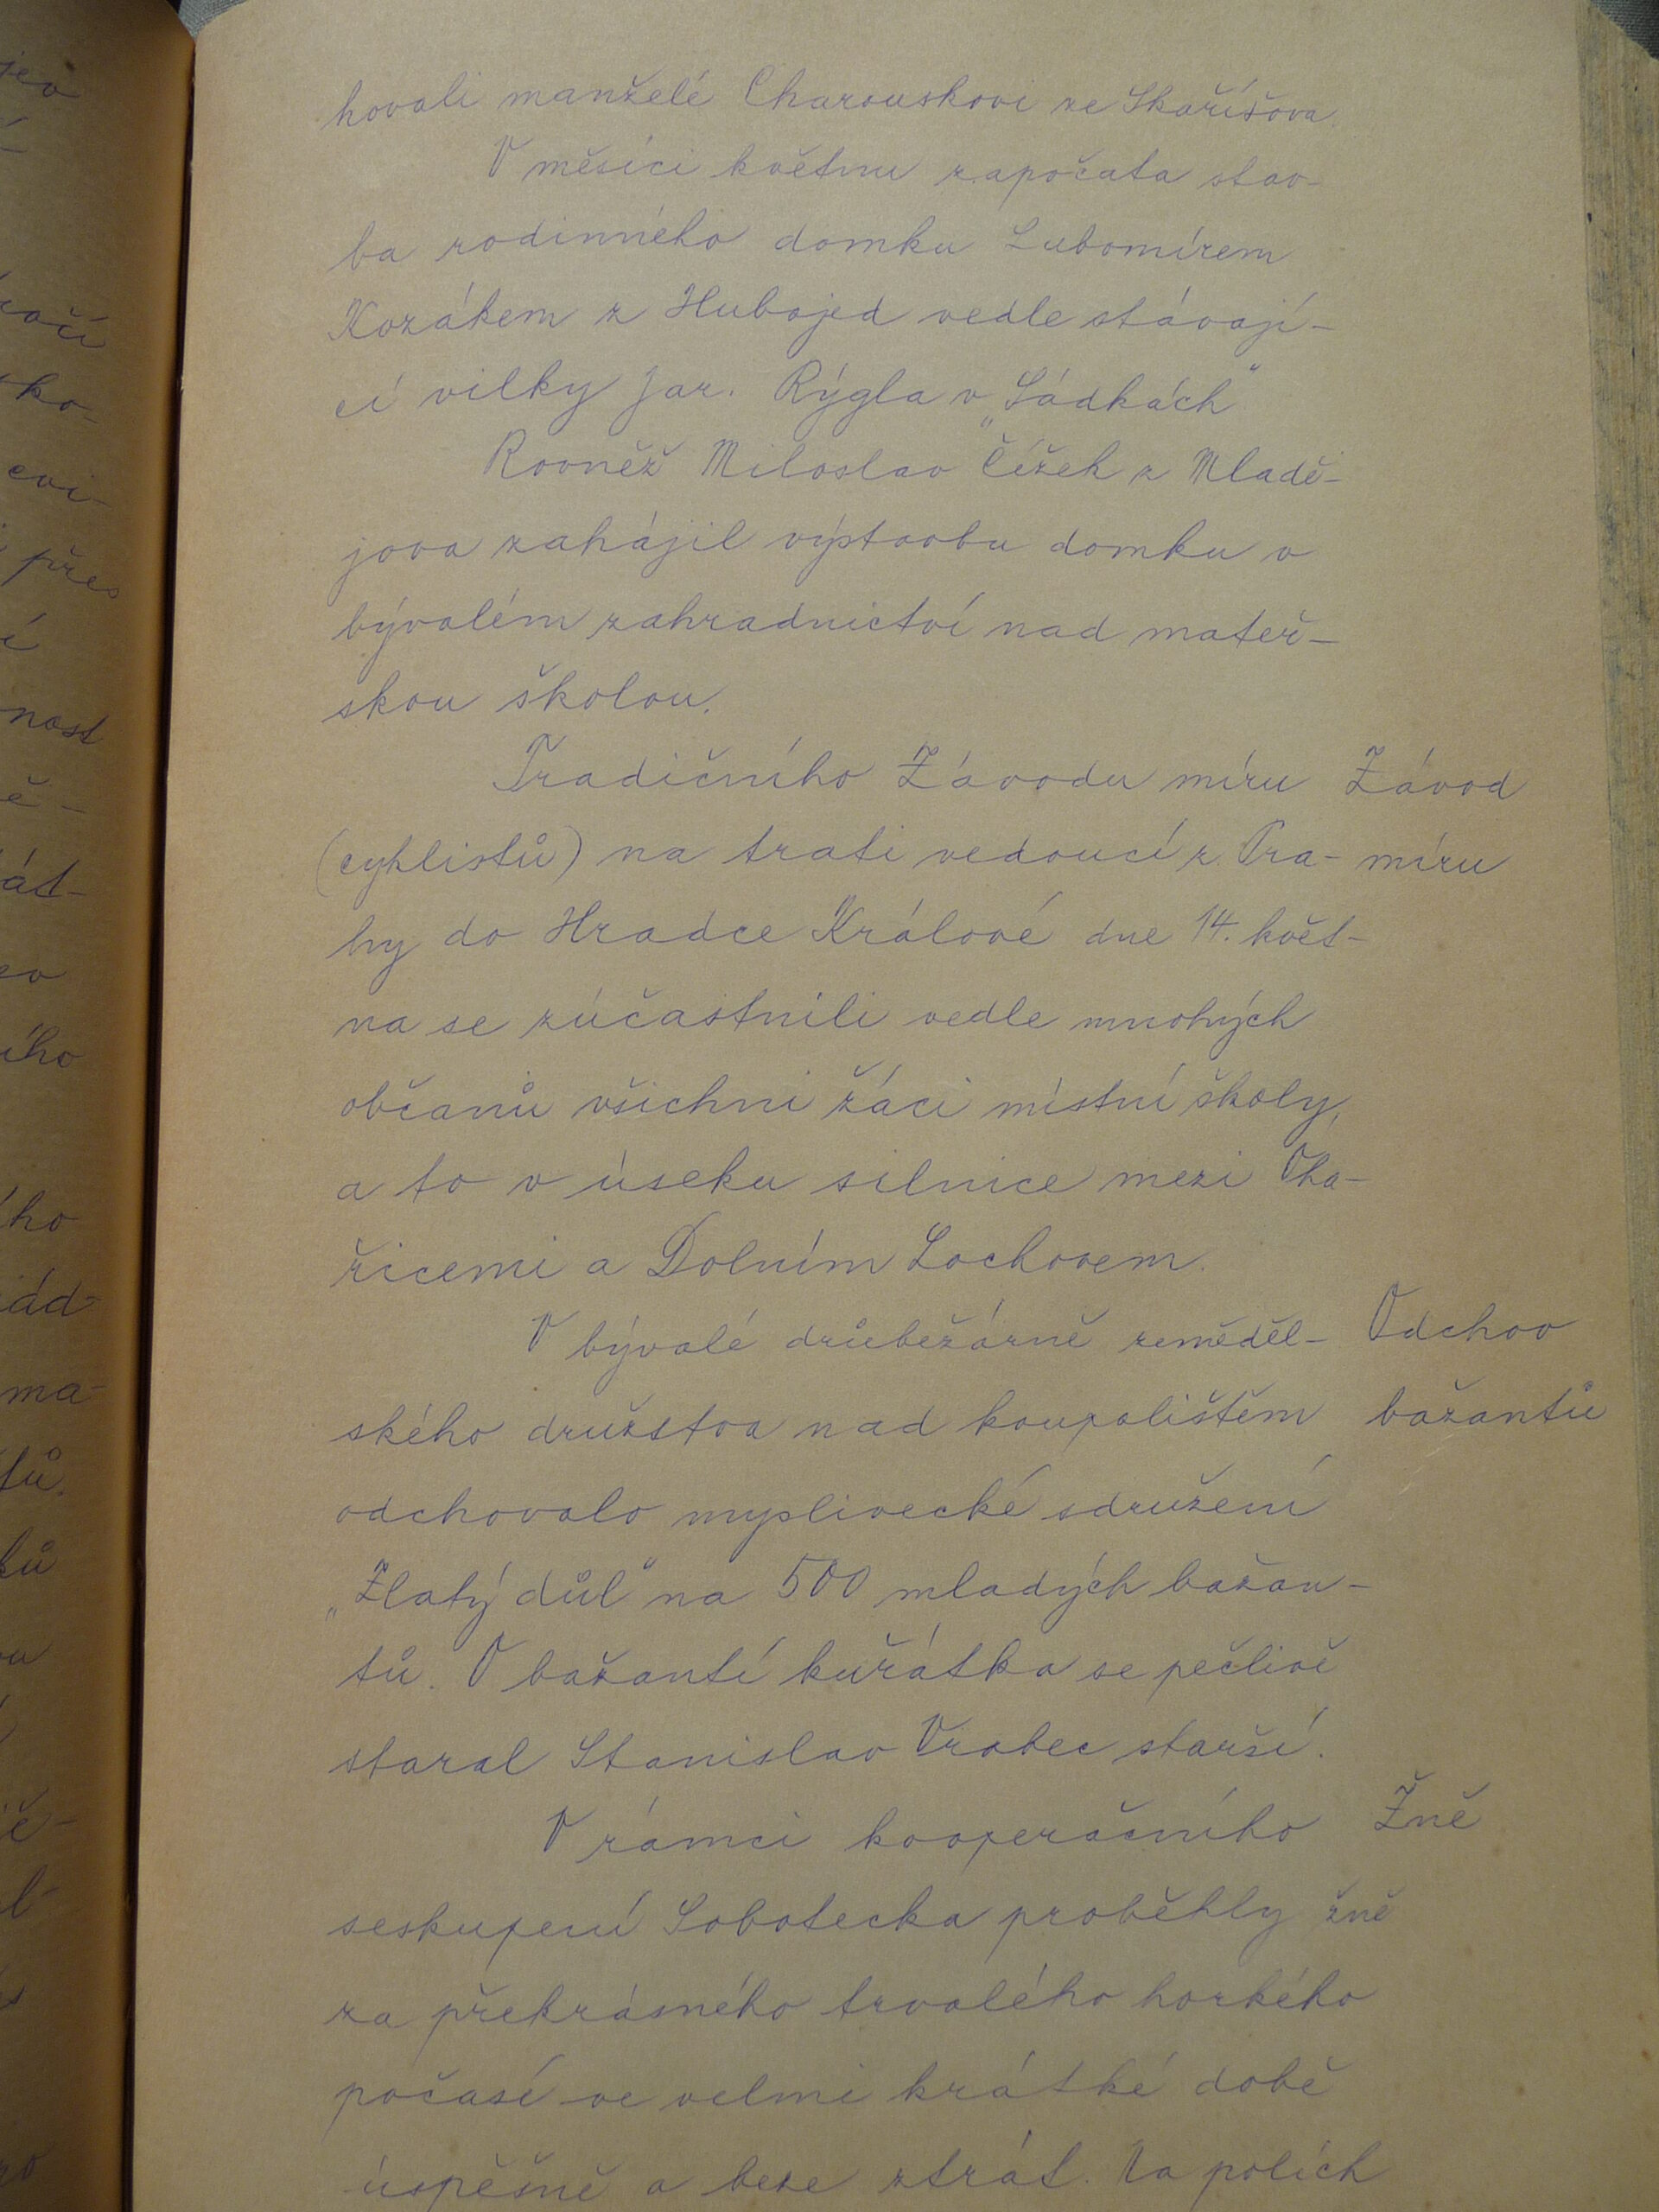 hovali manželé Charouskovi ze Skaříšova.
V měsíci květnu započata stav-
ba rodinného domku Lubomírem
Kozákem z Hubojed vedle stávají-
cí vilky Jar. Rýgla v „Sádkách"
Rovněž Miloslav Čížek z Mladě-
jova zahájil výstavbu domku v
bývalém zahradnictví nad mateř-
skou školou.
Tradičního Závodu míru
Závod
(cyklistů) na trati vedoucí z Pra-
míru
hy do Hradce Králové dne 14. květ-
na se zúčastnili vedle mnohých
občanů všichni žáci místní školy,
a to v úseku silnice mezi Oha-
řicemi a Dolním Lochovem.
V bývalé drůbežárně zeměděl-
Odchov
ského družstva nad koupalištěm
bažantů
odchovalo myslivecké sdružení
„Zlatý důl" na 500 mladých bažan-
tů. O bažantí kuřátka se pečlivě
staral Stanislav Vrabec starší.
V rámci kooperačního
Žně
seskupení Sobotecka proběhly žně
za překrásného trvalého horkého
počasí ve velmi krátké době
úspěšně a beze ztrát. Na polích